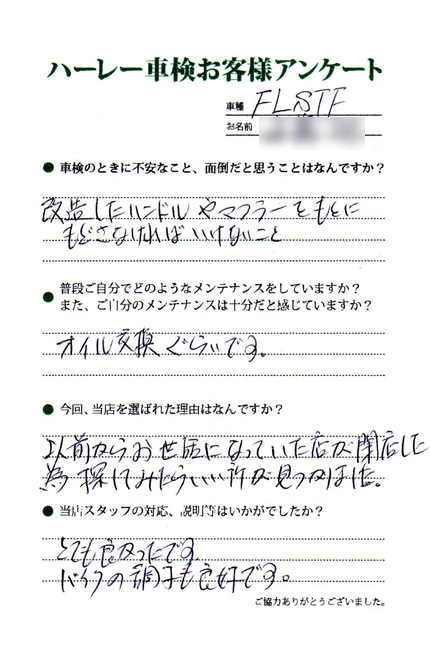 ハーレー車検お客様アンケート
車種 FLSTF
お名前
● 車検のときに不安なこと、面倒だと思うことはなんですか?
改造したハンドルやマフラーをもとに
もどさなければいけないこと
● 普段ご自分でどのようなメンテナンスをしていますか?
また、ご自分のメンテナンスは十分だと感じていますか?
オイル交換ぐらいです。
● 今回、当店を選ばれた理由はなんですか?
以前からお世話になっていた店が閉店した
為探してみたらいい所が見つかりました。
● 当店スタッフの対応、説明等はいかがでしたか?
とても良かったです
バイクの調子も良好です。
ご協力ありがとうございました。